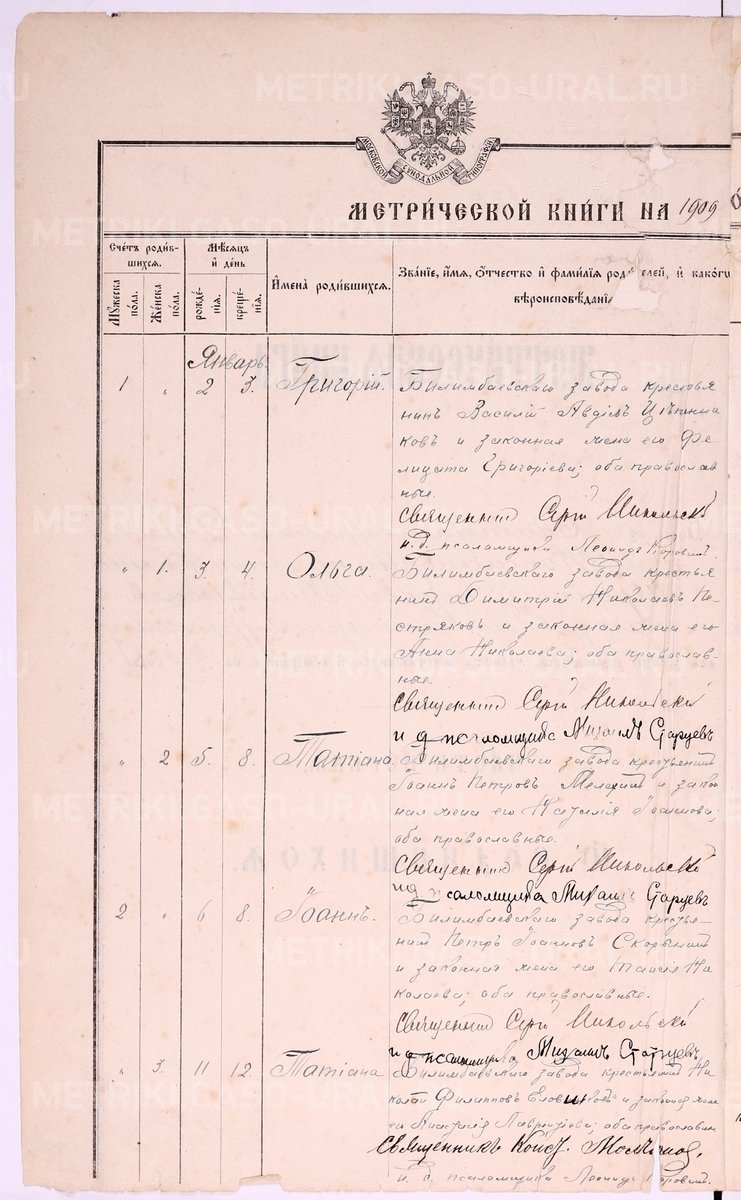 МОСКОВСКОЙ СУНОДАЛЬНОЙ ТИПОГРАФІИ
МЕТРИ́ЧЕСКОЙ КНИ́ГИ НА 1909
Сче́тъ роди́в-
шихся.
Мꙋ́жеска по́ла.
Же́нска по́ла.
Мѣ́сяцъ
и҆ де́нь
рожде́-
нїя.
креще́-
нїя.
И҆мена̀ роди́вшихся.
Зва́нїе, и҆́мя, ѻ҆́тчество и҆ фами́лїя род елей, и҆ како́гѡ
вѣроисповѣ́данїѧ
Январь
1 " 2 3. Григорій.
Билимбаевскаго завода крестья
нинъ Василій Авдіевъ
ковъ и законная жена его Фе
лицата Григоріева; оба православ
ные.
Священник Сергій Никольскій
и. д. псаломщика Леонидъ
" 1. 3. 4. Ольга.
Билимбаевскаго завода крестья
нинъ Димитрій Николаевъ Пе-
стряковъ и законная жена его
Анна Николаева; оба православ-
ные.
Священник Сергій Никольскій
и д псаломщика Михаилъ Старцевъ
" 2 5. 8. Татіана.
Билимбаевскаго завода крестьянин
Іоаннъ Петровъ и закон
ная жена его Наталія Іоаннова;
оба православные.
Священник Сергій Никольскій
и д псаломщика Михаилъ Старцевъ
2 " 6 8. Іоаннъ.
Билимбаевскаго завода крестья-
нин Петръ Іоанновъ Скорынин
и законная жена его Таисія Ни
колаева; оба православные.
Священник Сергій Никольскій
и д псаломщика Михаилъ Старцевъ
" 3. 11 12. Татіана
Билимбаевскаго завода крестьянин Ни
колай Филипповъ и законная жена
его Анастасія Лаврентіева; оба православн
Священникъ Конст.
и. д. псаломщика Леонидъ
METRIKI.GASO-URAL.RU